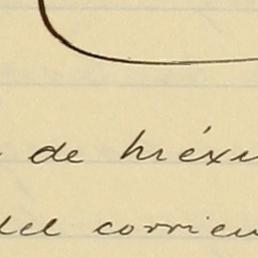 de Méxi
del corrien